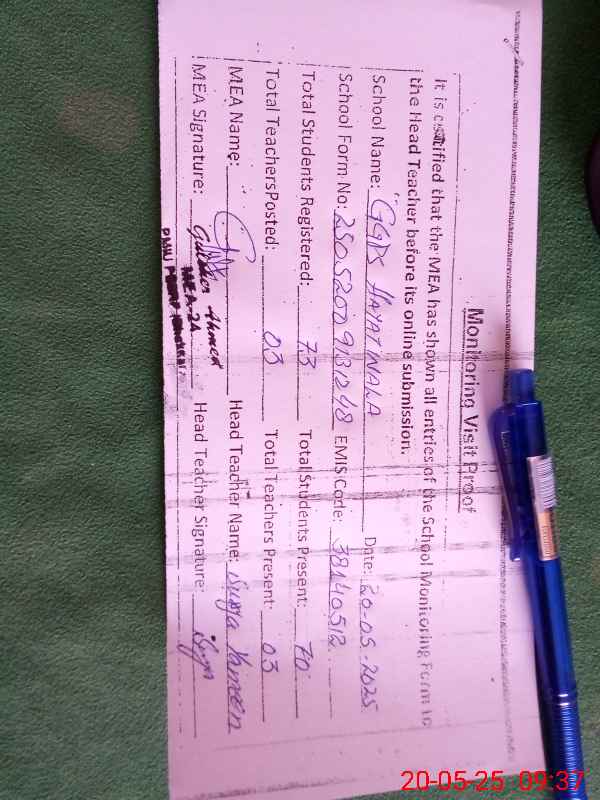 Monitoring Visit Proof
It is certified that the MEA has shown all entries of the School Monitoring Form to
the Head Teacher before its online submission.
School Name: GGPS HAYATWALA Date: 20-05-2025
School Form No: 25052009131248 EMIS Code: 38140512
Total Students Registered: 73 Total Students Present: 70
Total TeachersPosted: 03 Total Teachers Present: 03
MEA Name: Head Teacher Name:
MEA Signature: Ahmed Head Teacher Signature:
MEA-24
PMIU
20-05-25 09:37